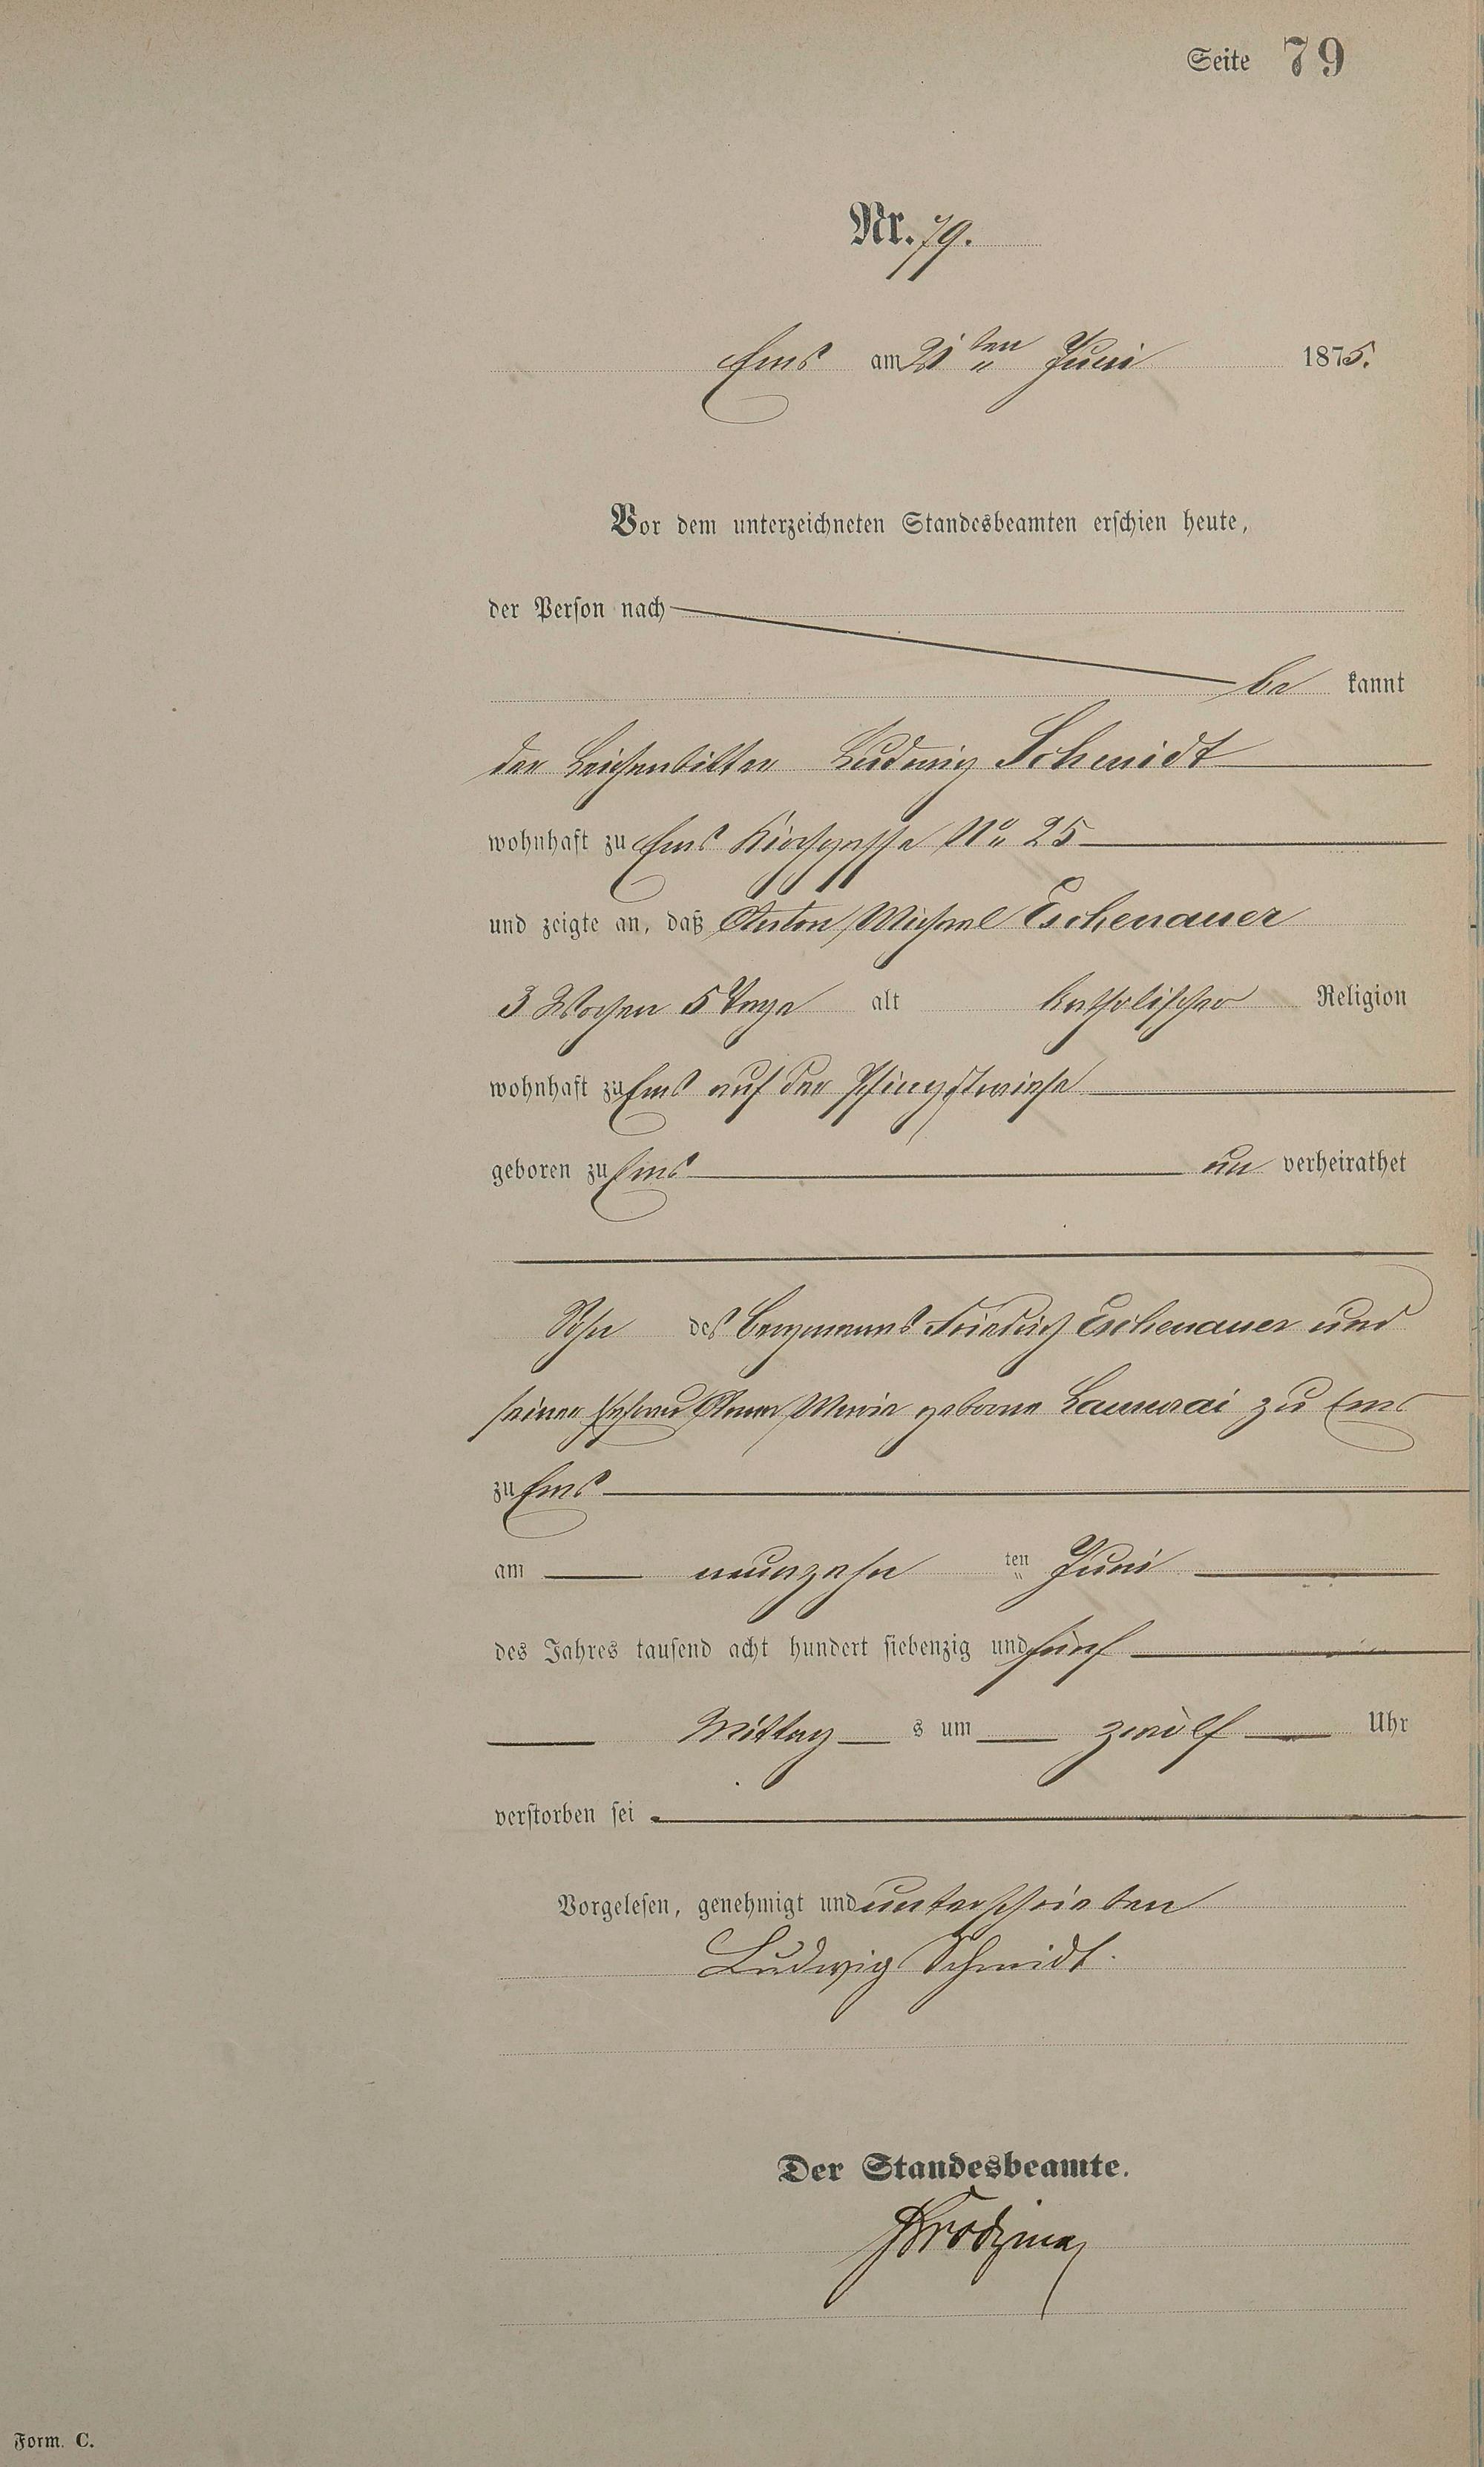 Seite 79
Nr. 79.
Ems am 21ten Juni 1875.
Vor dem unterzeichneten Standesbeamten erschien heute,
der Person nach
be kannt
der Leichenbitter Ludwig Schmidt
wohnhaft zu Ems Kirchgasse No 25
und zeigte an, daß Anton Michael Eschenauer
3 Wochen 5 Tage alt katholischer Religion
wohnhaft zu Ems auf der Pfingstwiese
geboren zu Ems un verheirathet
Sohn des Bergmanns Friedrich Eschenauer und
seiner Ehefrau Anna Maria geborne zu Ems
zu Ems
am neunzehn ten Juni
des Jahres tausend acht hundert siebenzig und fünf
Mittag s um zwölf Uhr
verstorben sei
Vorgelesen, genehmigt und unterschrieben
Ludwig Schmidt.
Der Standesbeamte.
Form. C.